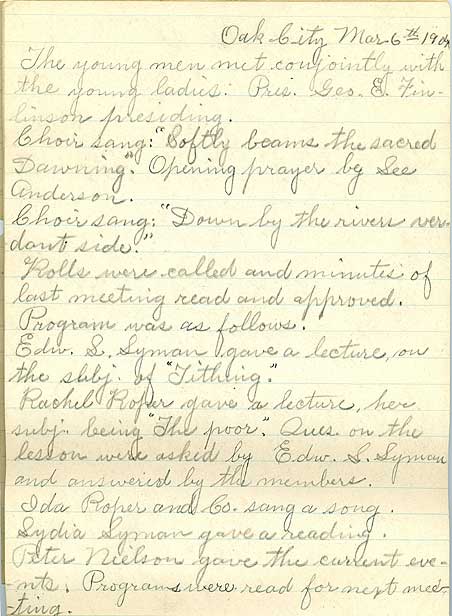 Oak City Mar 6th 190
The young men met conjointly with
the young ladies. Pres. Geo. E. Fin-
linson presiding.
Choir sang: "Softly beams the sacred
Dawning". Opening prayer by Lee
Anderson.
Choir sang: "Down by the rivers ver-
dant side."
Rolls were called and minutes of
last meeting read and approved.
Program was as follows.
Edw. L. Lyman gave a lecture, on
the subj. of "Tithing."
Rachel Roper gave a lecture, her
subj. being "The poor". Ques. on the
lesson were asked by Edw. L. Lyman
and answered by the members.
Ida Roper and Co. sang a song.
Lydia Lyman gave a reading.
Peter Nielson gave the current eve-
-nts. Programs were read for next mee-
-ting.